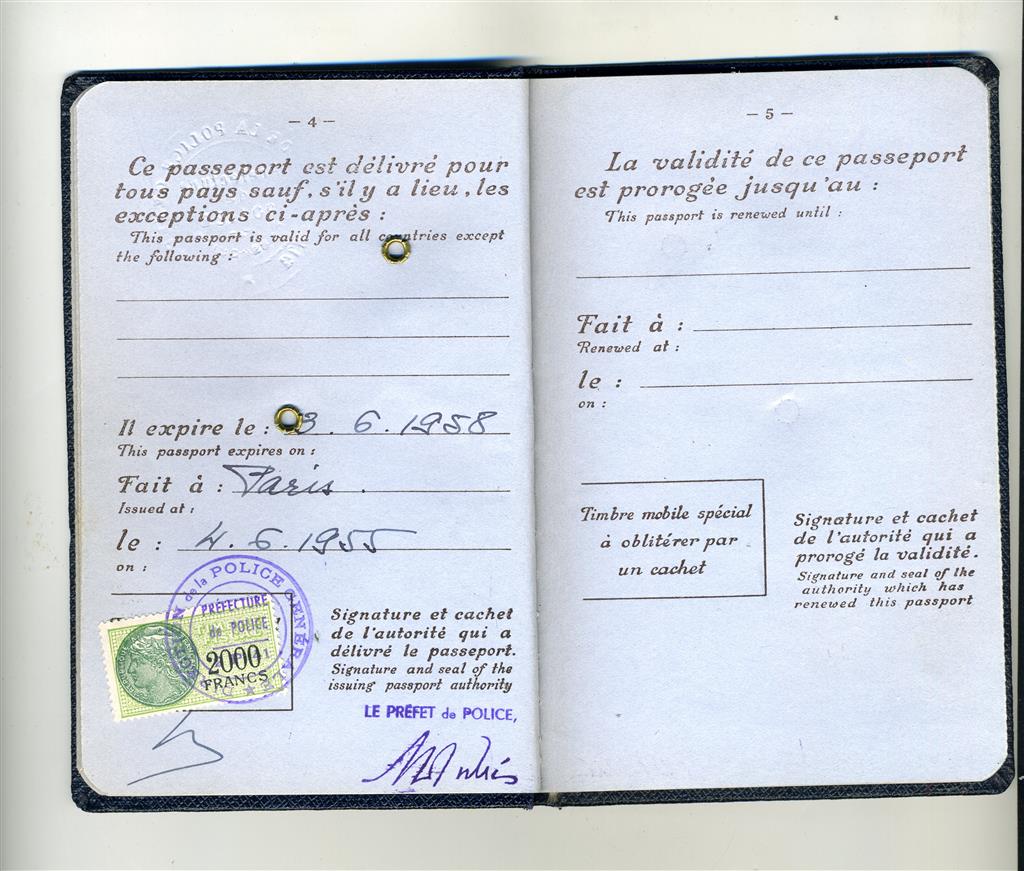 — 4 —
Ce passeport est délivré pour
tous pays sauf, s'il y a lieu, les
exceptions ci-après :
This passport is valid for all countries except
the following :
Il expire le : 3. 6. 1958
This passport expires on :
Fait à : Paris.
Issued at :
le : 4. 6. 1955
on :
POLICE GÉNÉRALE
PRÉFECTURE
de POLICE
2000
FRANCS
Signature et cachet
de l'autorité qui a
délivré le passeport.
Signature and seal of the
issuing passport authority
LE PRÉFET de POLICE,
— 5 —
La validité de ce passeport
est prorogée jusqu'au :
This passport is renewed until :
Fait à :
Renewed at :
le :
on :
Timbre mobile spécial
à oblitérer par
un cachet
Signature et cachet
de l'autorité qui a
prorogé la validité.
Signature and seal of the
authority which has
renewed this passport